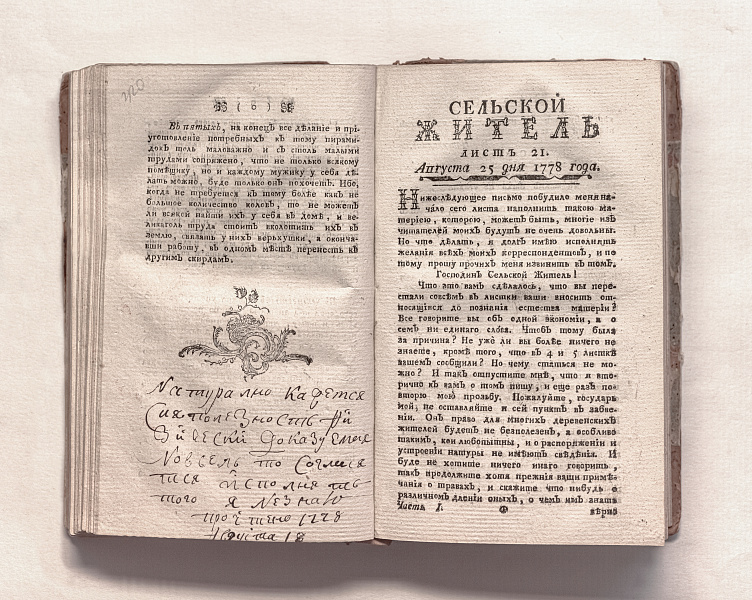 ( 6 )
Въ пятыхъ, на конецъ все дѣланіе и прі-
уготовленіе потребныхъ къ тому пирами-
докъ толь маловажно и съ столь малыми
трудами сопряжено, что не только всякому
помѣщику, но и каждому мужику у себя дѣ-
лать можно, буде только онъ похочетъ. Ибо,
когда не требуется къ тому болѣе какъ не
большое количество коловъ, то не можетъ
ли всякой найти ихъ у себя въ домѣ, и ве-
ликаголь труда стоитъ вколотить ихъ въ
землю, связать у нихъ верьхушки, а оконча-
вши работу, въ одномъ мѣстѣ перенесть къ
другимъ скирдамъ.
Натурално кажется
сия полезность
доказуемая
но всель то соглася
тся исполнять
того я незнаю
прочтено 1778
августа 18
СЕЛЬСКОЙ
ЖИТЕЛЬ
ЛИСТЪ 21.
Августа 25 дня 1778 года.
Нижослѣдующее письмо побудило меня на-
чало сего листа наполнить такою ма-
теріею, которою, можетъ быть, многіе изъ
читателей моихъ будутъ не очень довольны.
Но что дѣлать, я долгъ имѣю исполнять
желанія всѣхъ моихъ корреспондентовъ, и по
тому прошу прочихъ меня извинить въ томъ.
Господинъ Сельской Житель!
Что это вамъ сдѣлалось, что вы пере-
стали совсѣмъ въ листки ваши вносить отн-
осящіяся до познанія естества матеріи?
Все говорите вы объ одной экономіи, а о
семъ ни единаго слова. Чтобъ тому была
за причина? Не ужо ли вы болѣе ничего не
знаете, кромѣ того, что въ 4 и 5 листкѣ
вашемъ сообщили? Но чему статься не мо-
жно? И такъ отпустите мнѣ, что я вто-
рично къ вамъ о томъ пишу, и еще разъ по-
вторю мою прозьбу. Пожалуйте, государь
мой, не оставляйте и сей пунктъ въ забве-
ніи. Онъ право для многихъ деревенскихъ
жителей будетъ не безполезенъ, а особливо
такимъ, кои любопытны, и о распоряженіи и
устроеніи натуры не имѣютъ свѣденія. И
буде не хотите ничего инаго говорить,
такъ продолжите хотя прежнія ваши примѣ-
чанія о травахъ, и скажите что нибудь о
различномъ дленіи оныхъ, о чемъ имъ знать
Часть I.
вѣрно